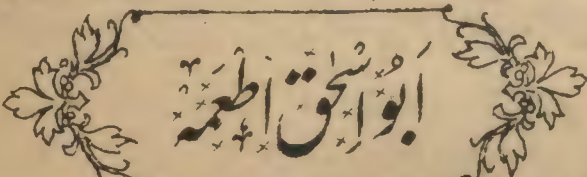 اَبُو اِسْحٰق اَطْعِمَه